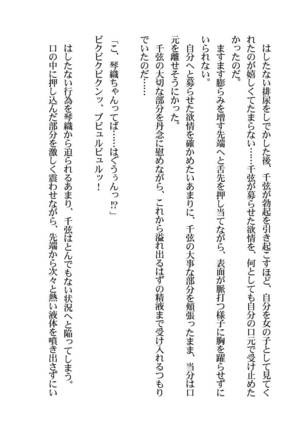 はしたない排尿をしでかした後、千弦が勃起を引き起こすほど、自分を女の子として見てく
れたのが嬉しくてたまらない……千弦が募らせた欲情を、何としても自分の口元で受け止めた
かったのだ。
ますます膨らみを増す先端へと舌先を押し当てながら、表面が脈打つ様子に胸を躍らせずに
いられない。
自分へと募らせた欲情を確かめたいあまりに、千弦の大事な部分を頬張ったまま、当分は口
元を離せそうにかった。
千弦の大切な部分を丹念に慰めながら、これから溢れ出るはずの精液まで受け入れるつもり
でいたのだ……
「こ、琴織ちゃんってば……はぐうぅんっ!?」
ビクビクビクンッ、ブピュルピュルッ!
はしたない行為を琴織から迫られるあまり、千弦はとんでもない状況へと陥ってしまう。
口の中に押し込んだ部分を激しく震わせながら、先端から次々と熱い液体を噴き出さずにい